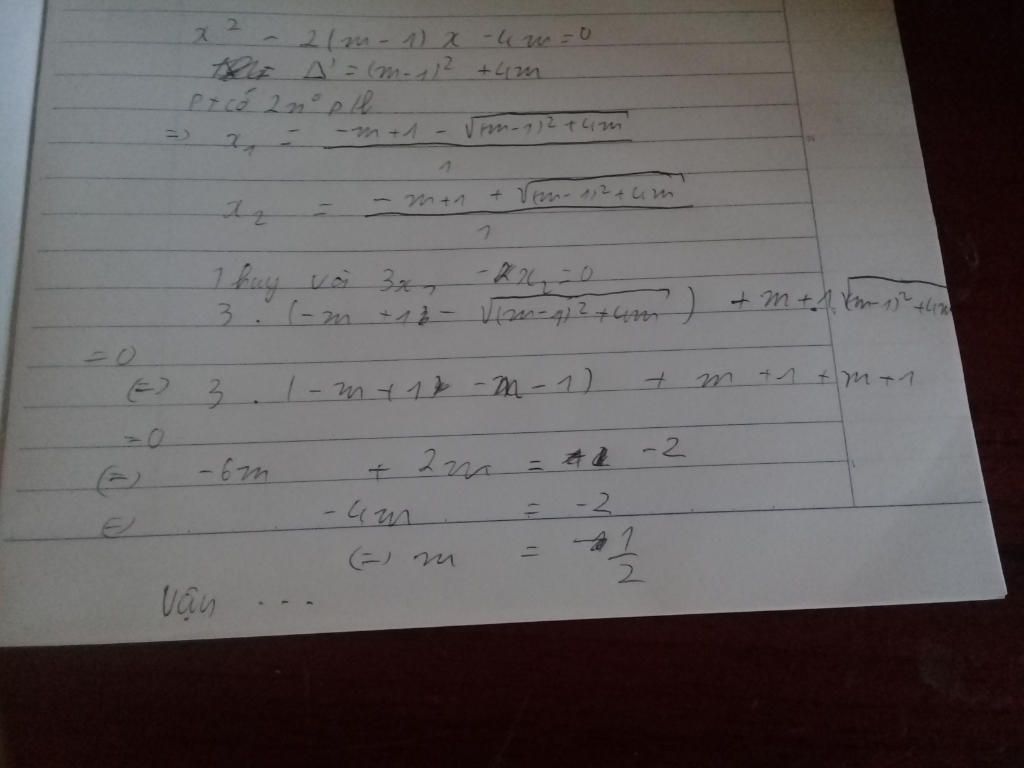 x² - 2(m-1)x - 4m = 0
Δ' = (m-1)² + 4m
Pt có 2 n° pb
=> x₁ = (-m+1 - √((m-1)² + 4m)) / 1
x₂ = (-m+1 + √((m-1)² + 4m)) / 1
Thay vào 3x₁ - x₂ = 0
3 . (-m + 1 - √((m-1)² + 4m)) + m + 1 . √((m-1)² + 4m
= 0
(=) 3 . (-m + 1 - m - 1) + m + 1 + m + 1
= 0
(=) -6m + 2m = -2
(=) -4m = -2
(=) m = 1/2
Vậy ...